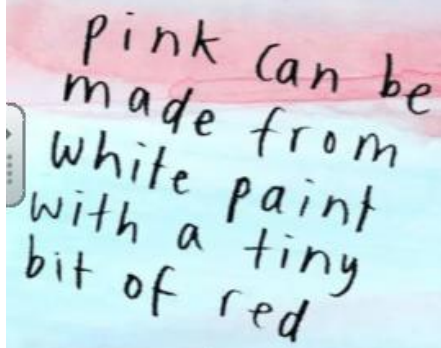 pink can be
made from
white paint
with a tiny
bit of red